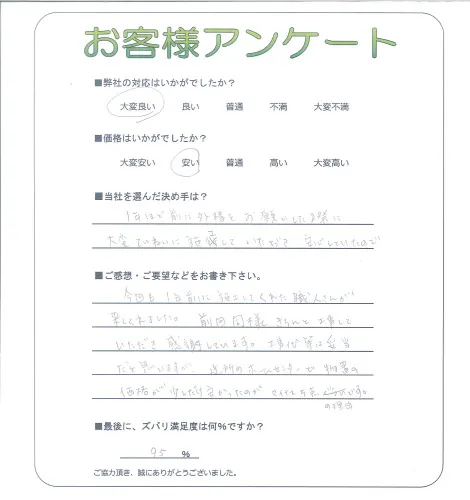 お客様アンケート
■弊社の対応はいかがでしたか？
大変良い 良い 普通 不満 大変不満
■価格はいかがでしたか？
大変安い 安い 普通 高い 大変高い
■当社を選んだ決め手は？
1年ほど前に外格をお願いした際に
大変ていねいに施していただき 安心していたので
■ご感想・ご要望などをお書き下さい。
今回も1年前に施工してくれた職人さんが
来てくれました。前回同様きちんと工事して
いただき感謝しています。工事代等は妥当
だと思いますが、近所のホームセンターで物置の
価格が少しだけ高かったのが
の理由
■最後に、ズバリ満足度は何%ですか？
95 %
ご協力頂き、誠にありがとうございました。